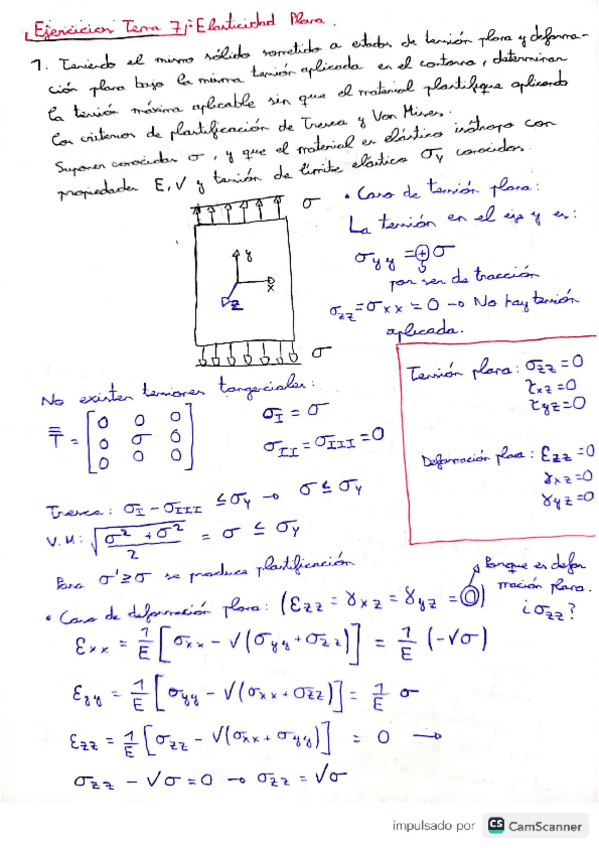 Ejercicios Tema 7: Elasticidad Plana.
1. Teniendo el mismo sólido sometido a estados de tensión plana y deforma-
ción plana bajo la misma tensión aplicada en el contorno, determinar
la tensión máxima aplicable sin que el material plastifique aplicando
los criterios de plastificación de Tresca y Von Mises.
Suponer conocidas σ, y que el material es elástico isótropo con
propiedades E, ν y tensión de límite elástico σy conocidos.
σ
y
x
z
σ
• Caso de tensión plana:
La tensión en el eje y es:
σyy = ⊕ σ
por ser de tracción
σzz = σxx = 0 → No hay tensión
aplicada.
Tensión plana: σzz = 0
τxz = 0
τyz = 0
Deformación plana: εzz = 0
γxz = 0
γyz = 0
No existen tensiones tangenciales:
T = [0 0 0
0 σ 0
0 0 0]
σI = σ
σII = σIII = 0
Tresca: σI − σIII ≤ σy → σ ≤ σy
V.M: √((σ² + σ²)/2) = σ ≤ σy
Para σ' ≥ σ se produce plastificación
• Caso de deformación plana: (εzz = γxz = γyz = 0)
Porque es defor
mación plana.
¿σzz?
εxx = 1/E [σxx − ν(σyy + σzz)] = 1/E (−νσ)
εyy = 1/E [σyy − ν(σxx + σzz)] = 1/E σ
εzz = 1/E [σzz − ν(σxx + σyy)] = 0 →
σzz − νσ = 0 → σzz = νσ
impulsado por CS CamScanner